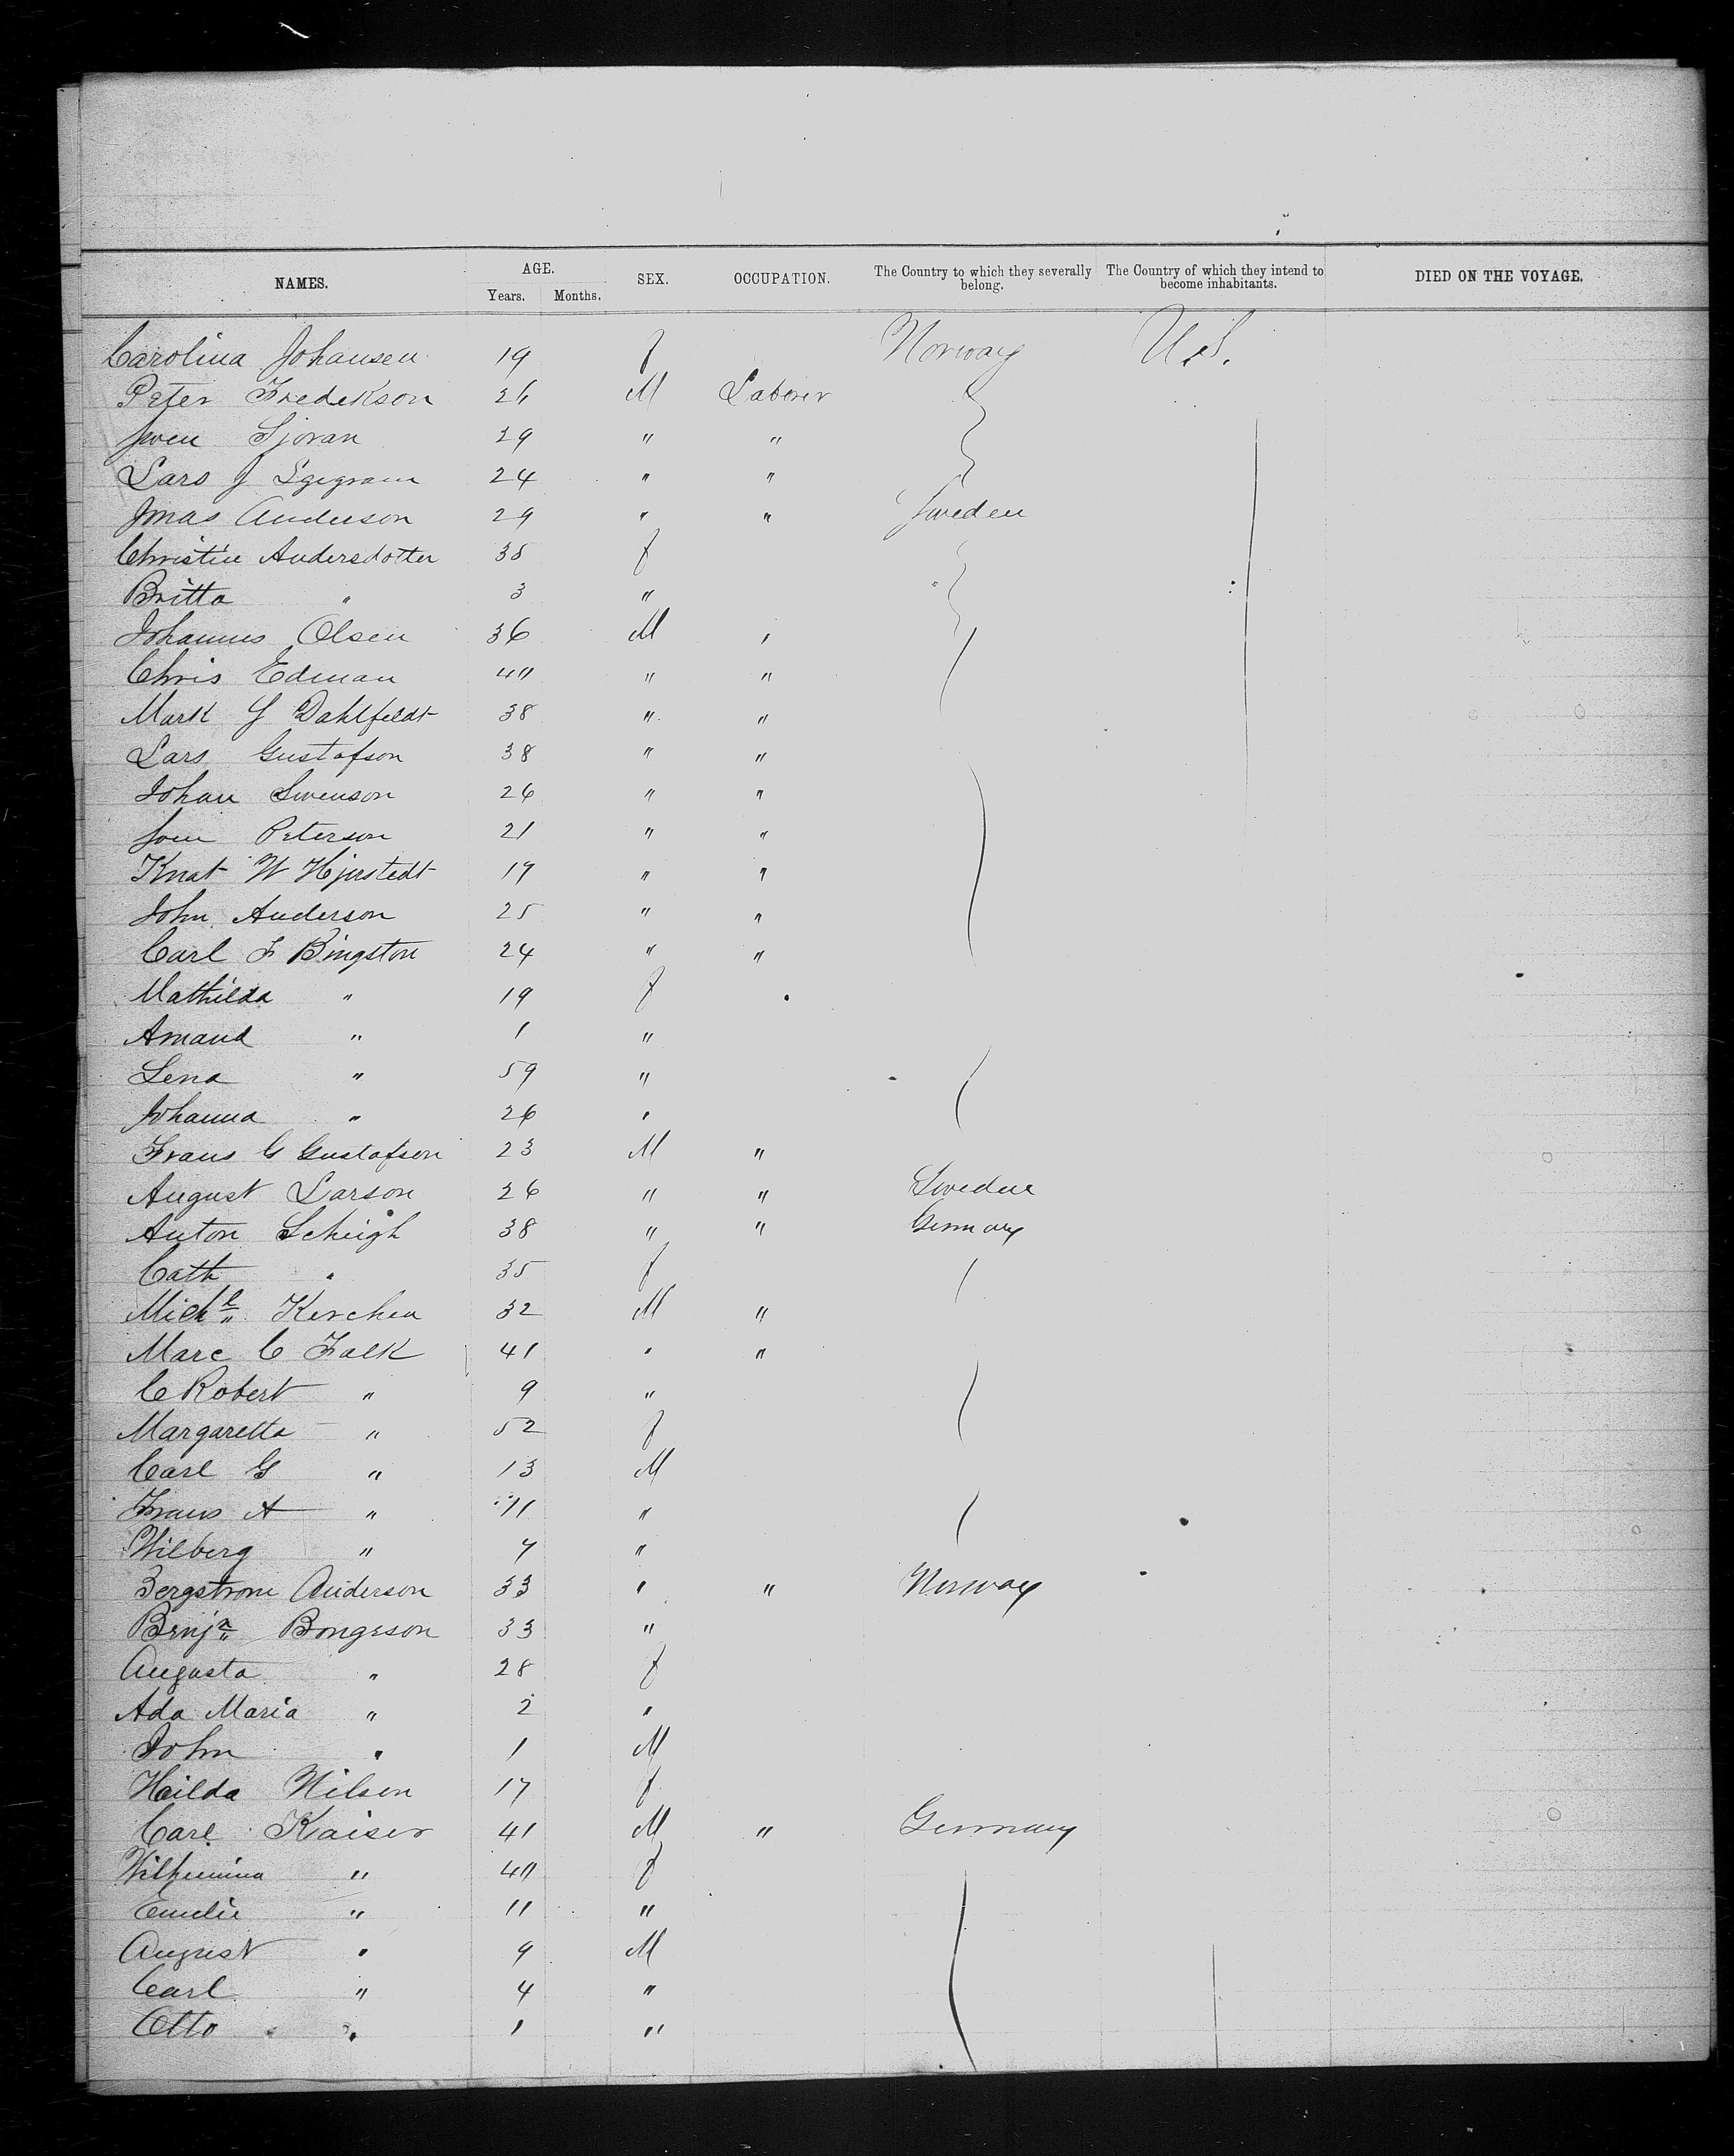 NAMES. AGE. SEX. OCCUPATION. The Country to which they severally belong. The Country of which they intend to become inhabitants. DIED ON THE VOYAGE.
Years. Months.
Carolina Johansen 19 f Norway U.S.
Peter Fredekson 26 M Laborer
Swen Sjoran 29 " "
Lars J 24 " "
Jonas Anderson 29 " " Sweden
Christin Andersdotter 35 f
Britta " 3 "
Johannes Olsen 36 M "
Chris Edman 40 " "
Mark G Dahlfeldt 38 " "
Lars Gustafson 38 " "
Johan Swenson 26 " "
Swen Peterson 21 " "
Knut W Hjerstedt 19 " "
John Anderson 25 " "
Carl F Bingston 24 " "
Mathilda " 19 f
Amand " 1 "
Lena " 59 "
Johanna " 26 "
Frans G Gustafson 23 M "
August Larson 26 " " Sweden
Anton Scheigh 38 " " Germany
Cath " 35 f
Michl Kerchen 32 M "
Marc C Falk 41 " "
C Robert " 9 "
Margaretta " 52 f
Carl G " 13 M
Frans A " 11 "
Wilberg " 7 "
Bergstrom Anderson 33 " " Norway
Benja Bongeson 33 "
Augusta " 28 f
Ada Maria " 2 "
John " 1 M
Hilda Nilson 17 f
Carl Kaiser 41 M " Germany
Wilhemina " 40 f
Emelie " 11 "
August " 9 M
Carl " 4 "
Otto " 1 "